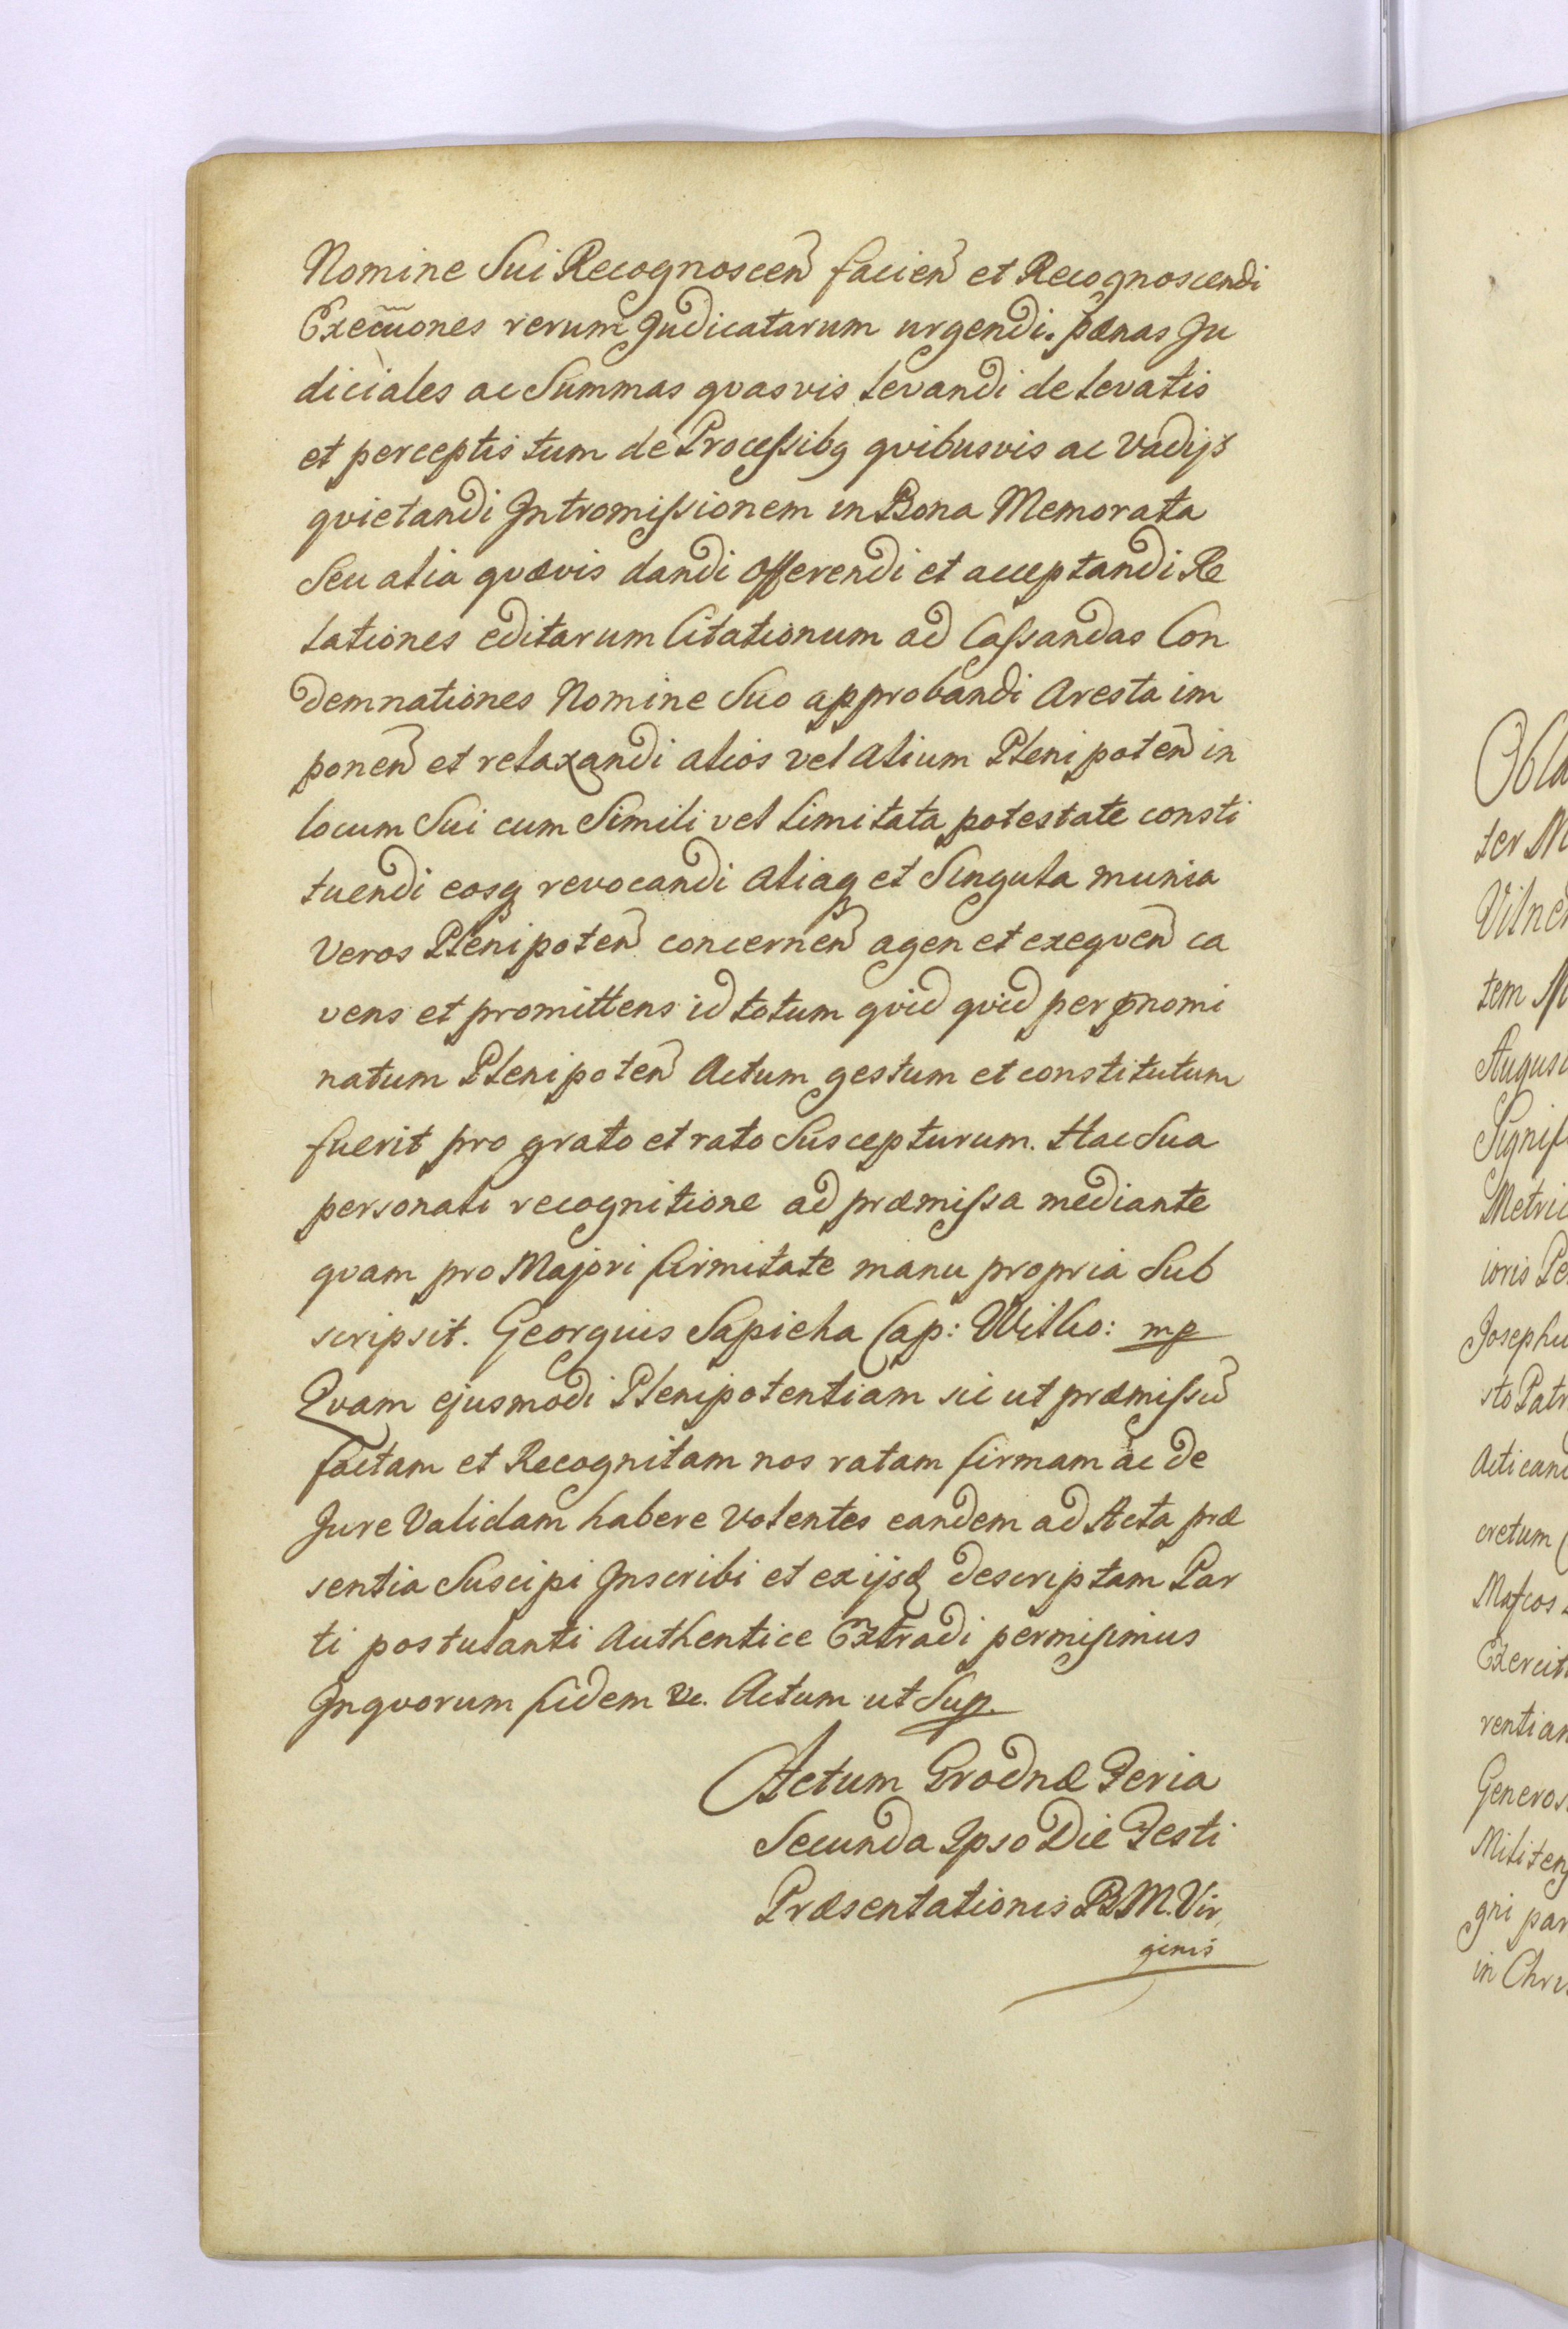 Nomine Sui Recognoscen̄ facien̄ et Recognoscendi
Execuones rerum Judicatarum urgendi. pænas Ju
diciales ac Summas qvasvis levandi de levatis
et perceptis tum de Processibq qvibusvis ac Vadijs
qvietandi Intromissionem in Bona Memorata
Seu alia qvævis dandi offerendi et acceptandi Re
lationes editarum Citationum ad Cassandas Con
demnationes Nomine Suo approbandi Aresta im
ponen̄ et relaxandi alios vel alium Plenipoten̄ in
locum Sui cum Simili vel limitata potestate consti
tuendi eosq revocandi aliaq et Singula munia
Veros Plenipoten̄ concernen̄ agen et exeqven̄ ca
vens et promittens id totum qvid qvid per pnomi
natum Plenipoten̄ Actum gestum et constitutum
fuerit pro grato et rato Suscepturum. Hac Sua
personali recognitione ad præmissa mediante
qvam pro Majori firmitate manu propria Sub
scripsit. Georgius Sapieha Cap: Wilko: mp
Qvam ejusmodi Plenipotentiam sic ut præmissū
factam et Recognitam nos ratam firmam ac de
Jure Validam habere volentes eandem ad Acta præ
sentia Suscipi Inscribi et ex ijsd descriptam Par
ti postulanti Authentice Extradi permisimus
In qvorum fidem &c. Actum ut Sup.
Actum Grodnæ Feria
Secunda Ipso Die Festi
Præsentationis B M. Vir
ginis
Obla
ter
Vilne
tem
August
Signif
Metric
ioris Pe
Josephu
sto Patr
Acticand
cretum
Mascos
Exercit
rentiam
Generos
Militem
gni par
in Chri